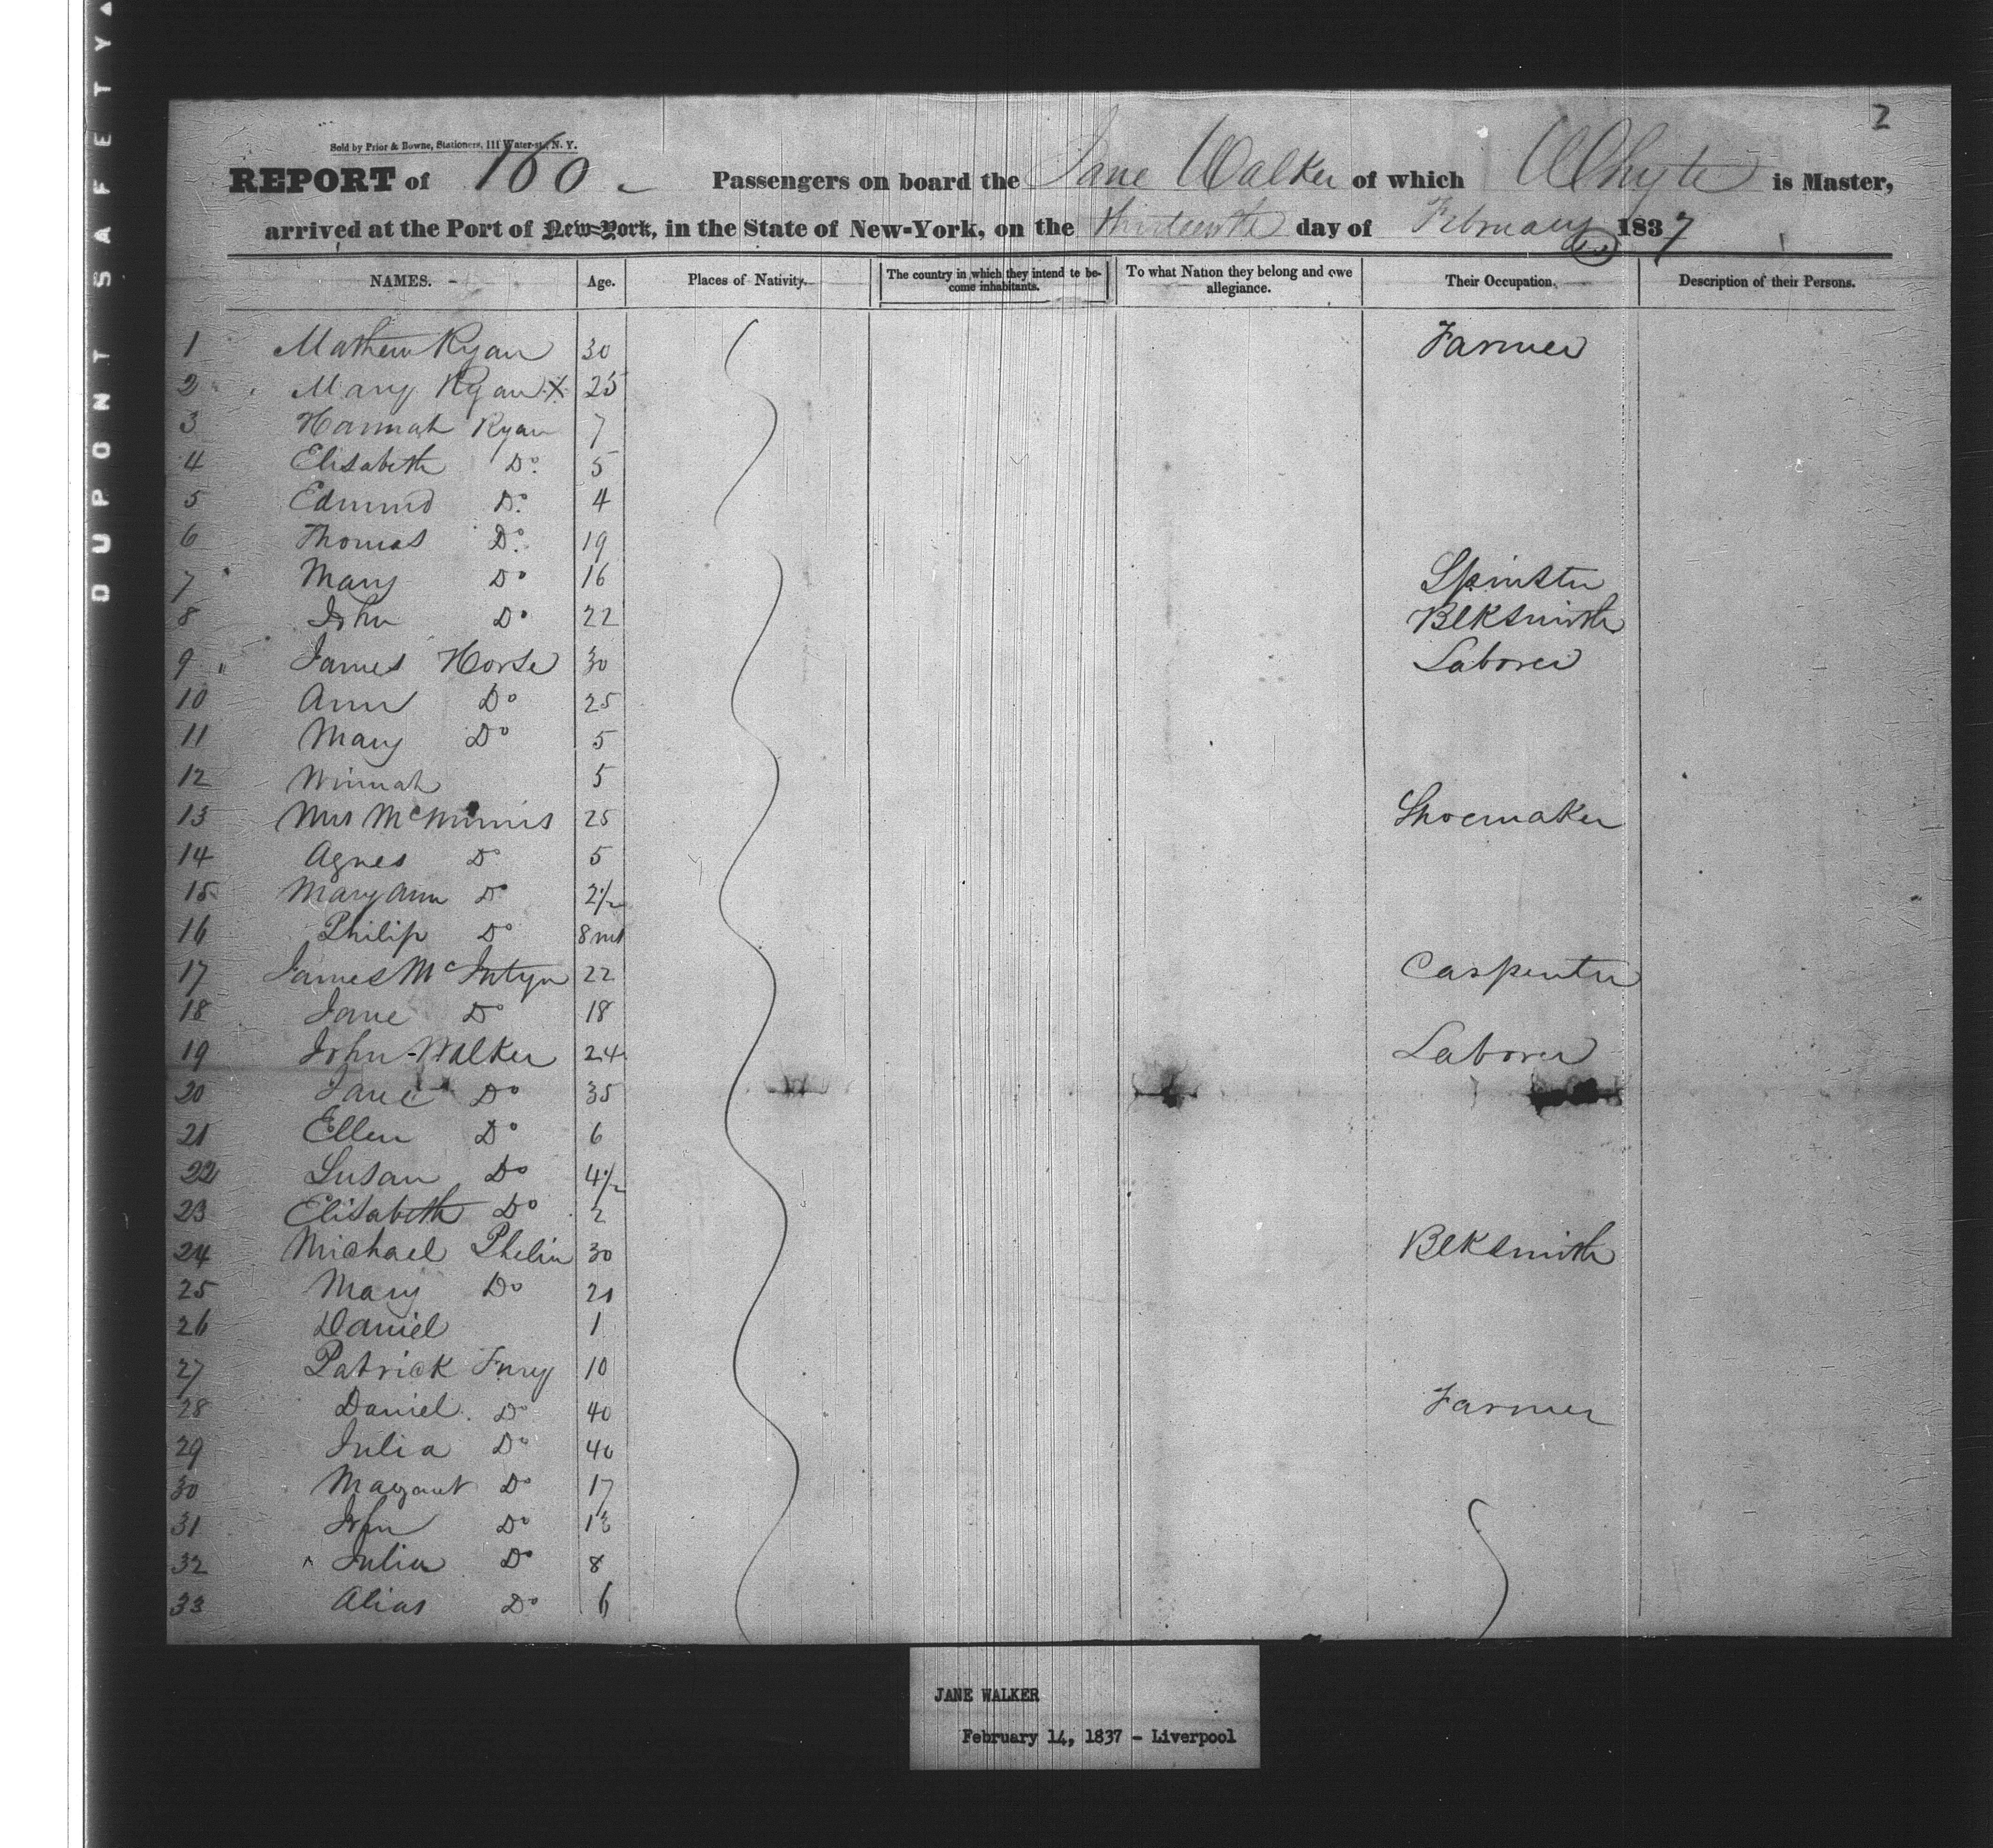 DUPONT SAFETY
2
Sold by Prior & Bowne, Stationers, 111 Water-st., N. Y.
REPORT of 160 Passengers on board the Jane Walker of which Whyte is Master,
arrived at the Port of New-York, in the State of New-York, on the thirteenth day of February 1837
NAMES. Age. Places of Nativity. The country in which they intend to become inhabitants. To what Nation they belong and owe allegiance. Their Occupation. Description of their Persons.
1 Mathew Ryan 30 Farmer
2 Mary Ryan X 25
3 Hannah Ryan 7
4 Elisabeth Do. 5
5 Edmund Do. 4
6 Thomas Do. 19
7 Mary Do 16 Spinster
8 John Do 22 Blksmith
9 " James Horse 30 Laborer
10 Ann Do 25
11 Mary Do 5
12 Winnah 5
13 Mrs 25 Shoemaker
14 Agnes Do 5
15 Mary Ann Do 2 1/2
16 Philip Do 8 ms
17 James McIntyre 22 Carpenter
18 Jane Do 18
19 John Walker 24 Laborer
20 Jane Do 35
21 Ellen Do 6
22 Susan Do 4 1/2
23 Elisabeth Do 2
24 Michael Phelin 30 Blksmith
25 Mary Do 21
26 Daniel 1
27 Patrick Fury 10
28 Daniel Do 40 Farmer
29 Julia Do 40
30 Magaret Do 17
31 John Do 13
32 Julia Do 8
33 Alias Do 6
JANE WALKER
February 14, 1837 - Liverpool